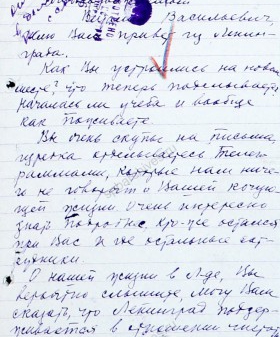 Васильевич,
шлю Вам привет из Ленин-
града.
Как Вы устроились на новом
месте, что теперь поделываете,
началась ли учеба и вообще
как поживаете.
Вы очень скупы на письма,
изредка отделываетесь Теле-
граммами, которые нам ниче-
го не говорят о Вашей кочую-
щей жизни. Очень интересно
знать подробнее, кто же остался
при Вас и где остальные сот-
рудники.
О нашей жизни в Л-де, Вы
вероятно, слышите, могу Вам
сказать, что Ленинград поддер-
живается в отношении чистоты